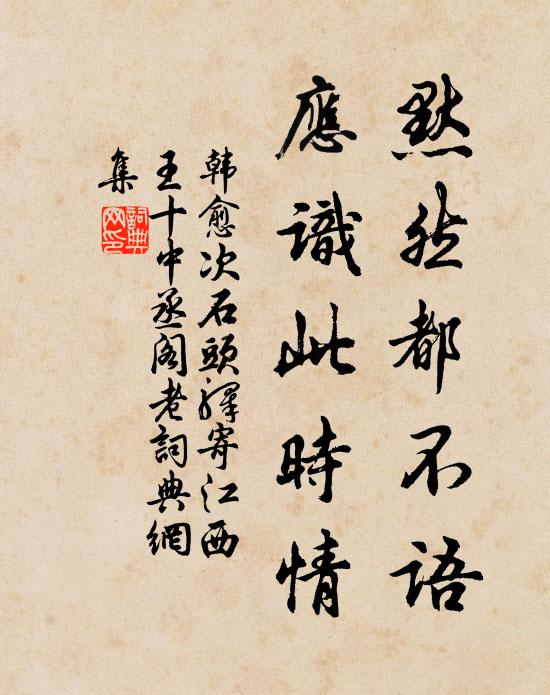 默然都不语
應識此時情
韩愈次石頭驿寄江西
王十中丞阁老詞典網
集
詞典網印